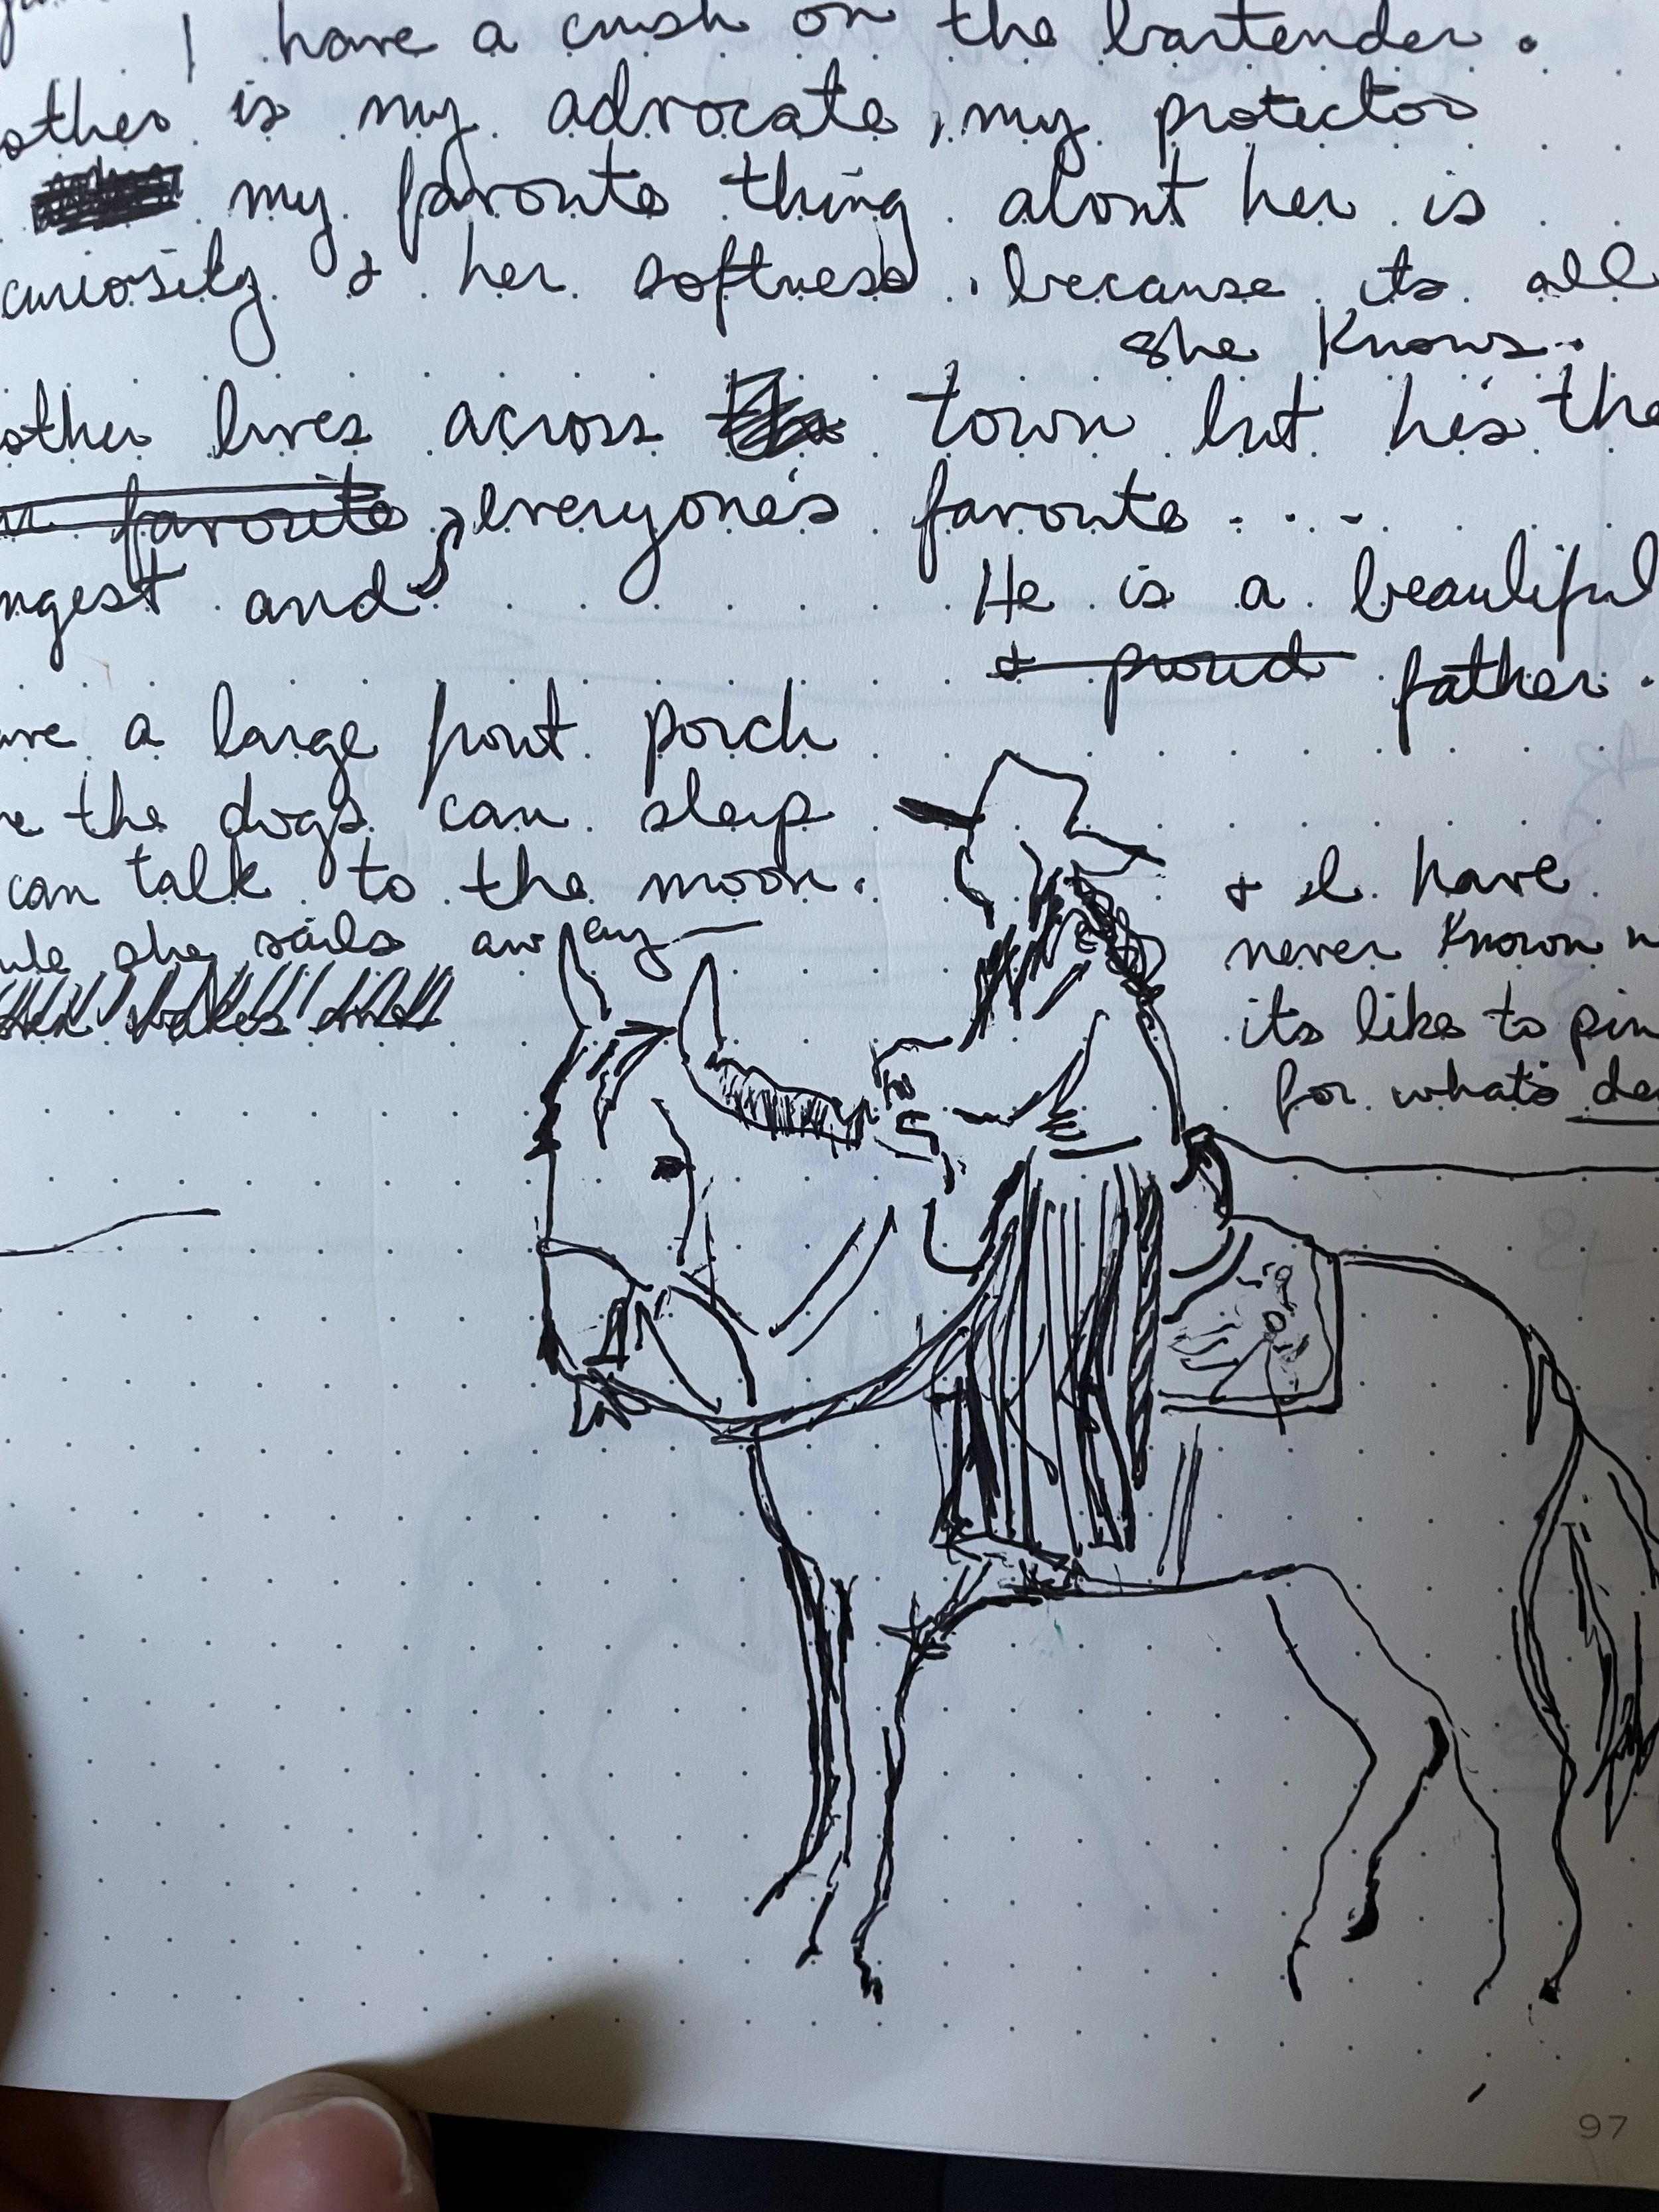 I have a crush on the bartender.
other is my advocate, my protector
my favorite thing about her is
curiosity & her softness. because its all
she knows..
other lives across town but he's the
favorite everyone's favorite . . . .
ngest and
He is a beautiful
& proud father.
ave a large front porch
re the dogs can sleep
can talk to the moon.
she sails away —
& I have
never known
its like to pin
for whats de
97